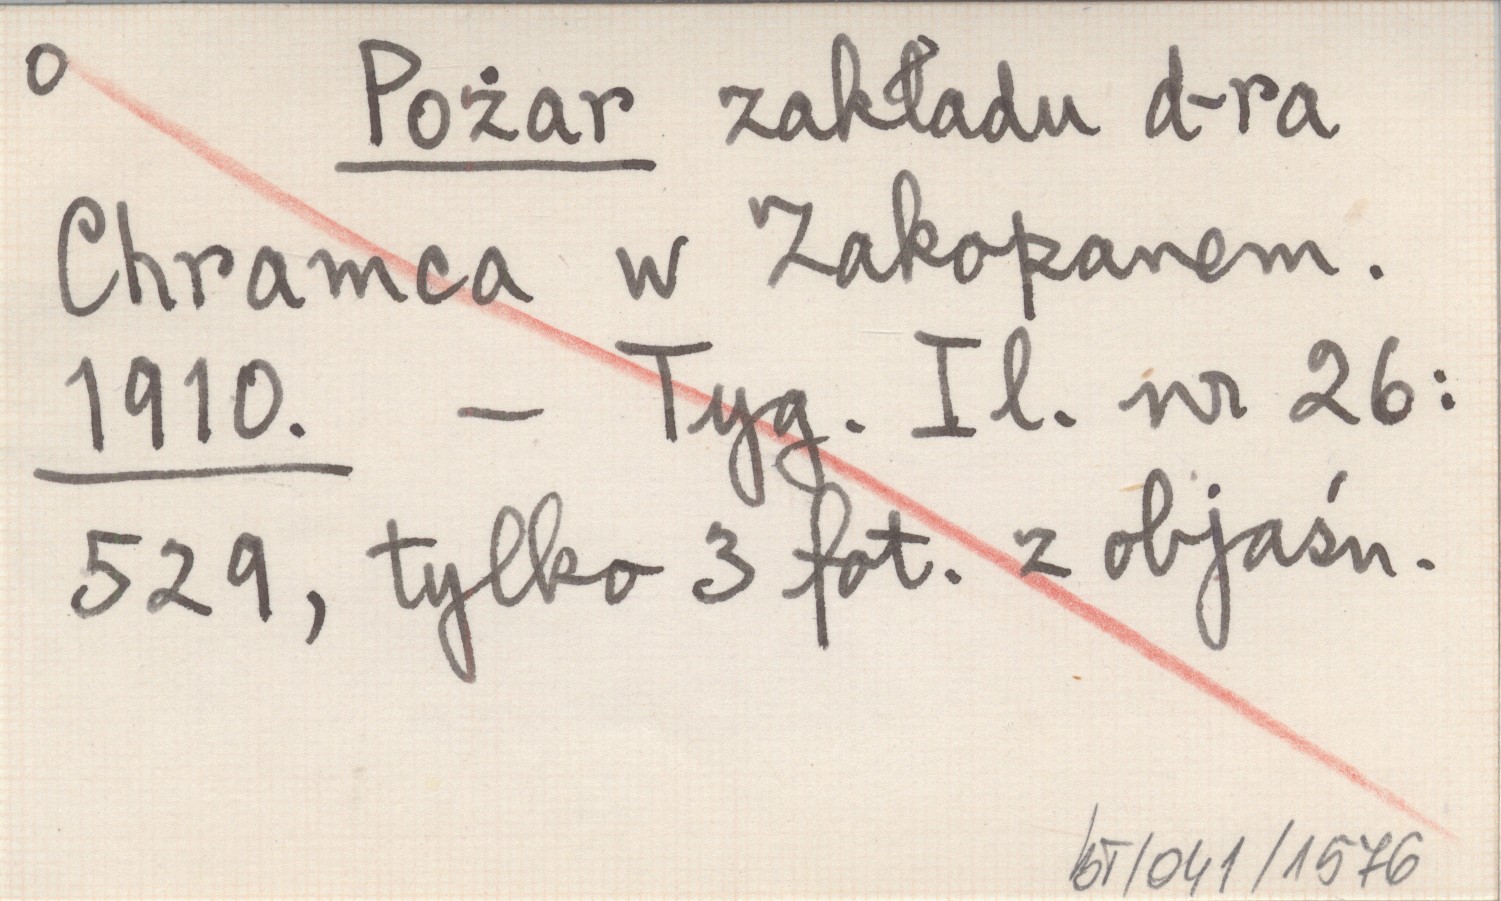 o Pożar zakładu d-ra
Chramca w Zakopanem.
1910. – Tyg. Il. nr 26:
529, tylko 3 fot. z objaśn.
/041/1576